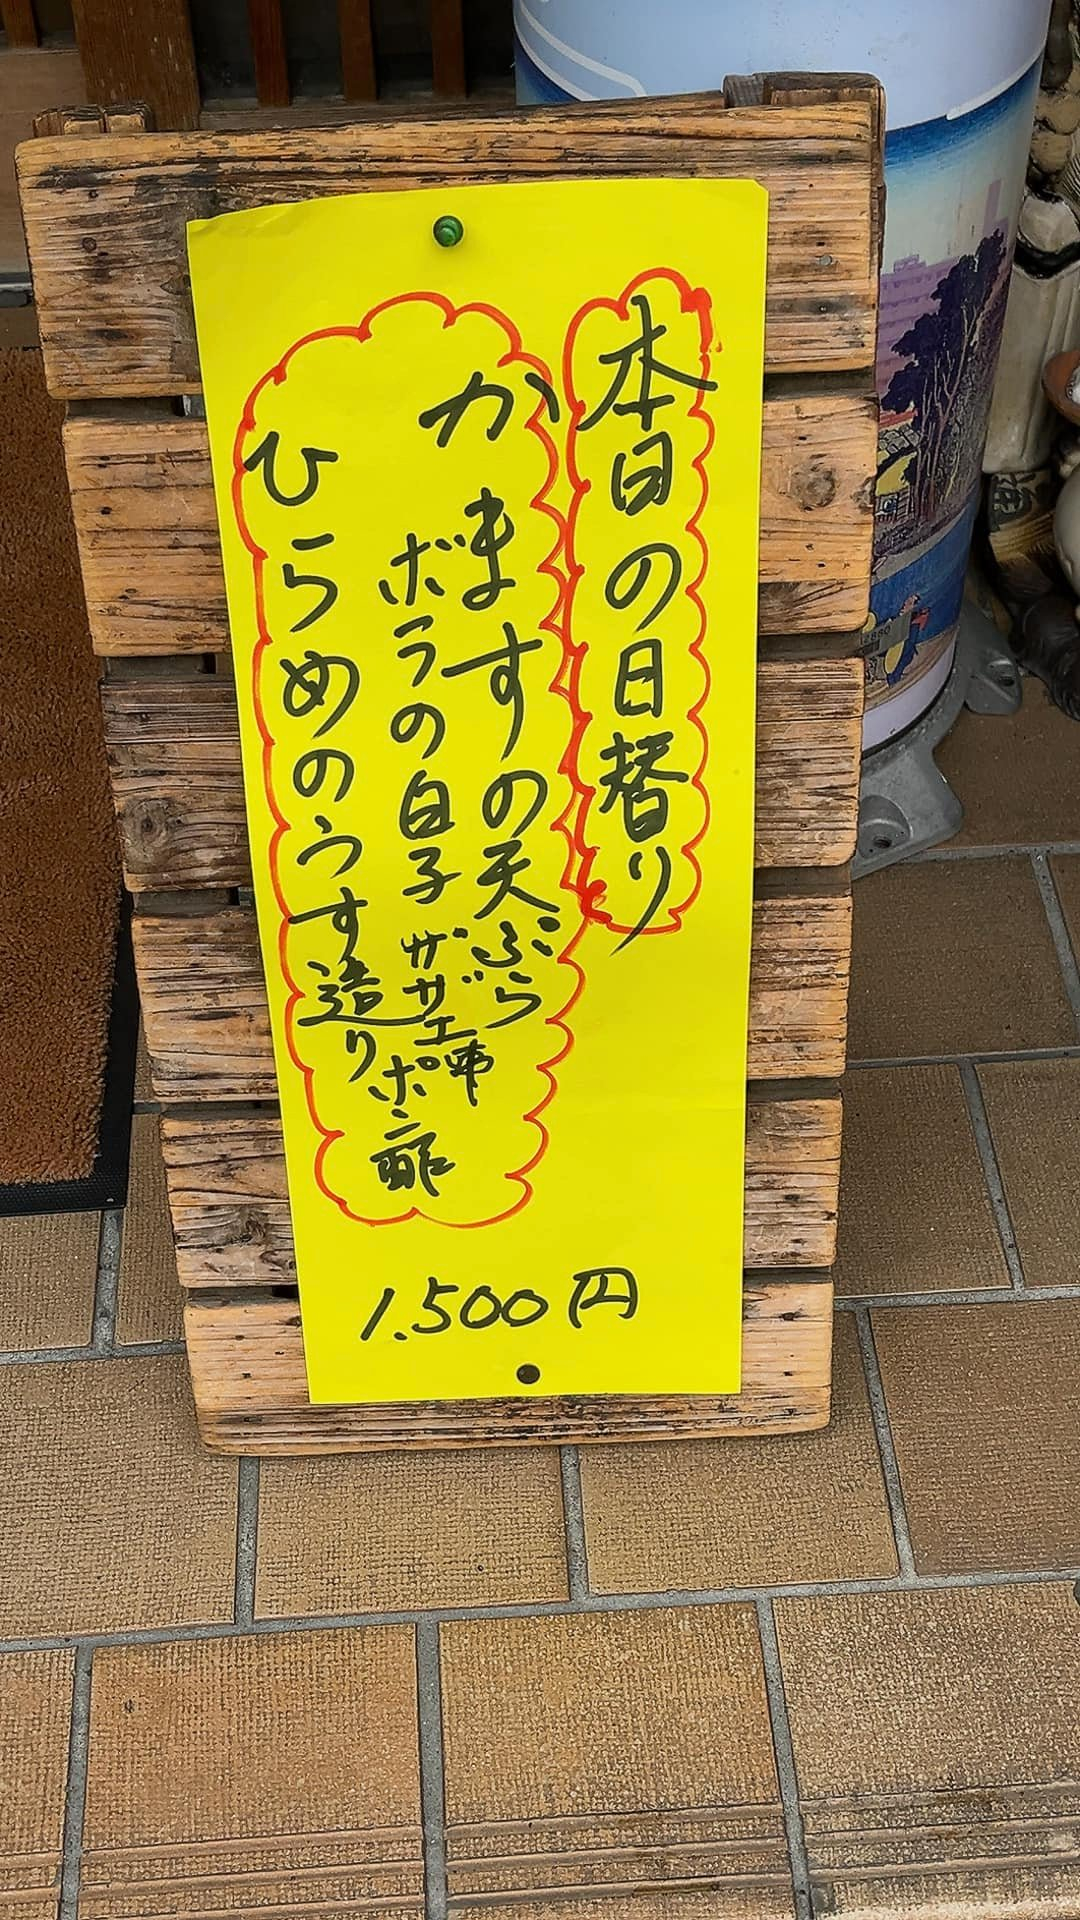 本日の日替り
かますの天ぷら
ボラの白子 サザエ
ポン酢
ひらめのうす造り
1.500円